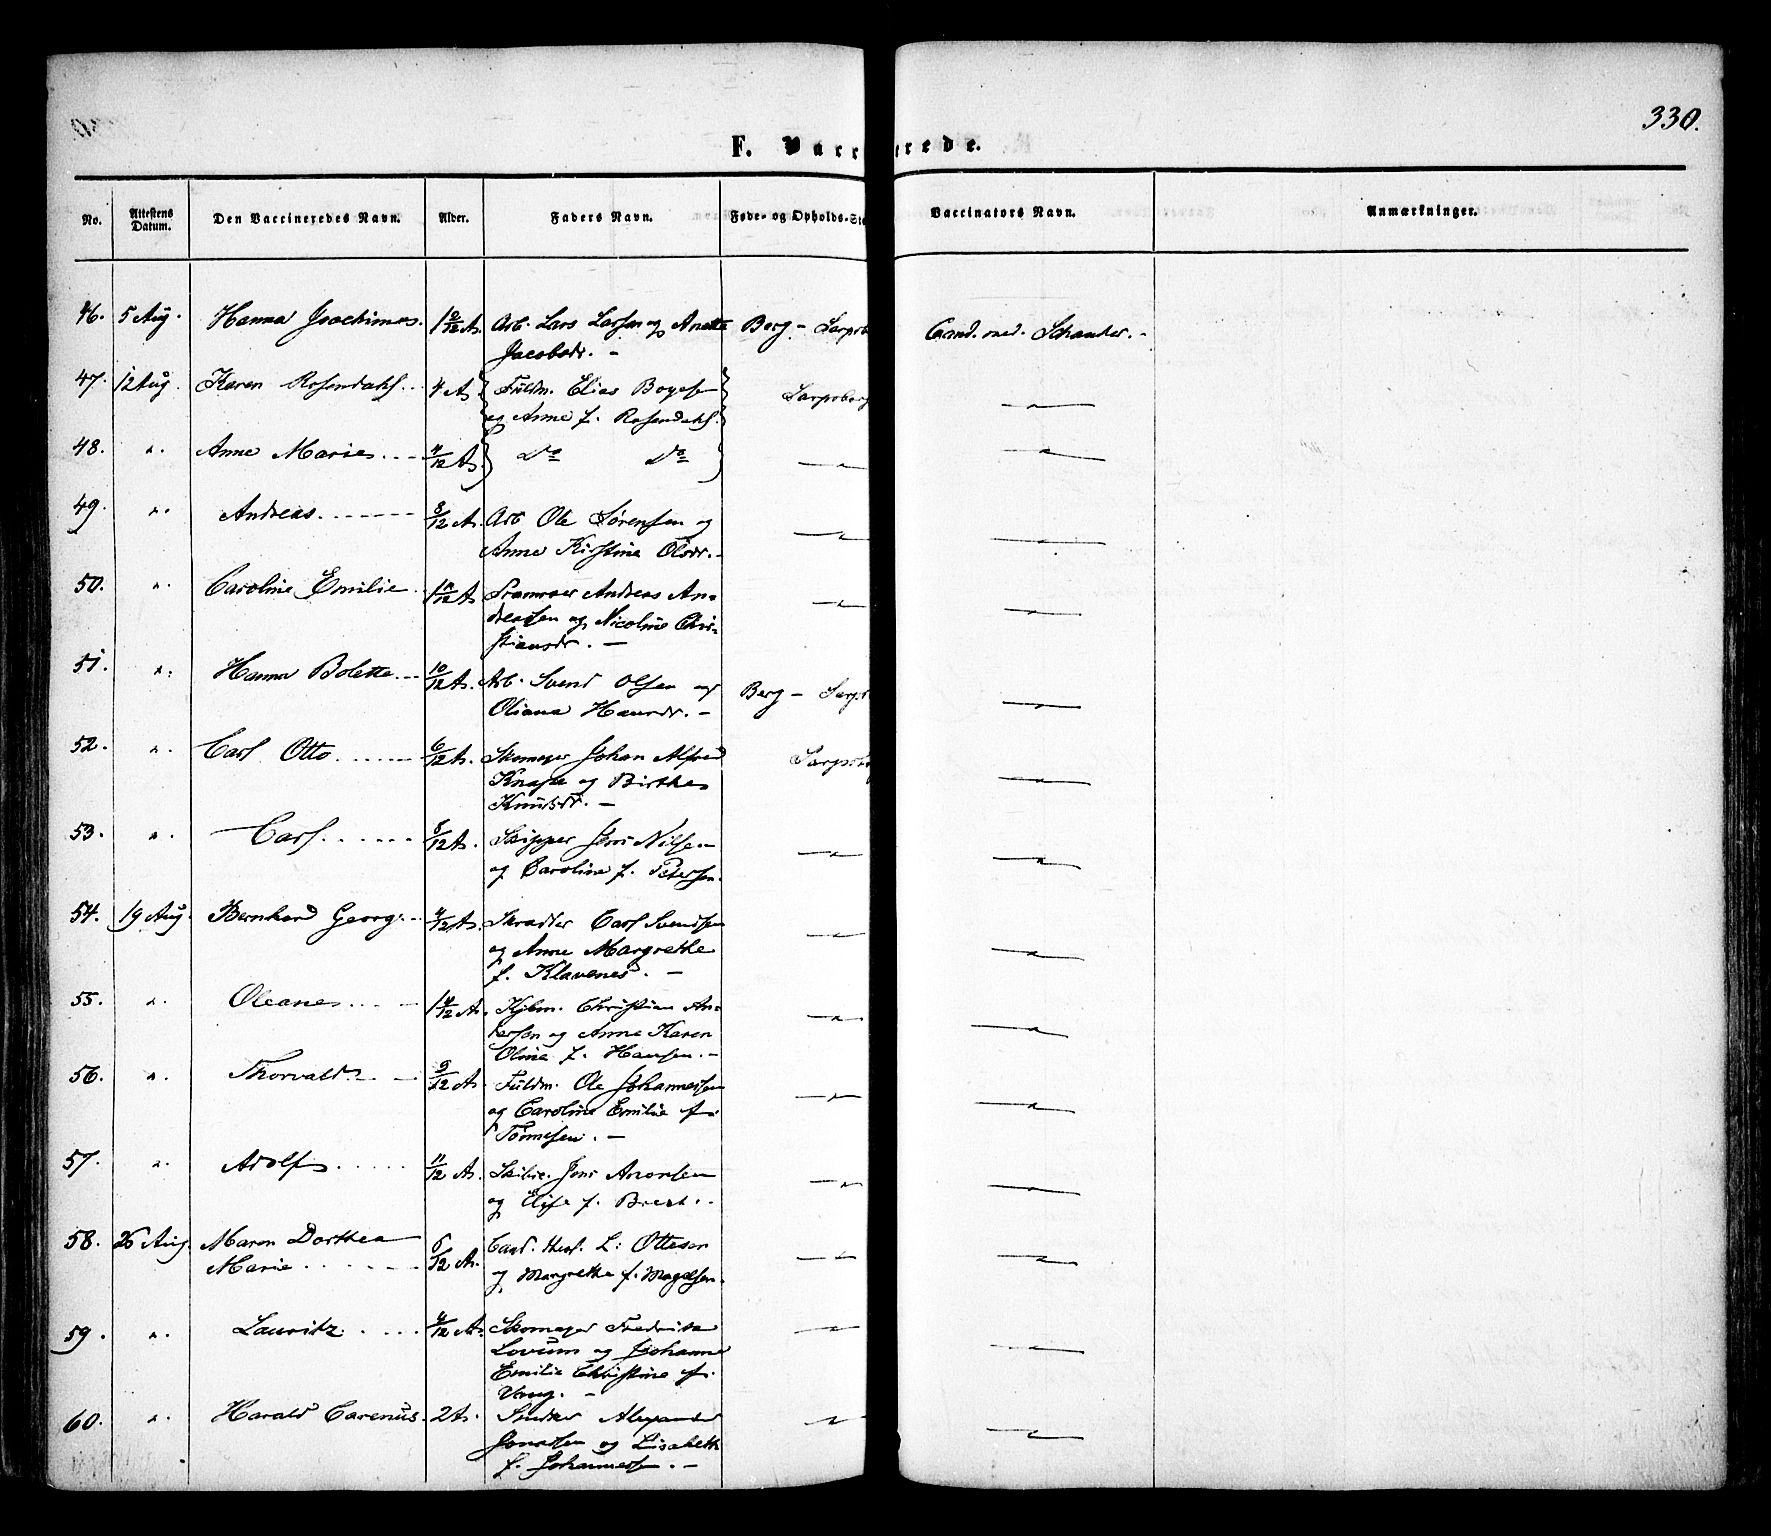 330.
F. Vaccinerede.
No. Attestens Datum. Den Vaccineredes Navn. Alder. Faders Navn. Føde- og Opholds-Ste Vaccinators Navn. Anmærkninger.
46. 5 Aug. Hanna Joachimas. 1 9/12 A. Arb. Lars Larsen og Anette Berg - Sarpsb Cand. med. Schanter. -
Jacobsdr. -
47. 12 Aug. Karen Rosendahl.. 4 A Fuldm. Elias Boyesen Sarpsborg
og Anne f. Rosendahl.
48. " Anne Marie... 4/12 A. Do Do — " —
49. " Andreas. - - - - 8/12 A. Arb Ole Sørensen og
Anne Kirstine Olsdr. -
50. " Caroline Emilie. 1 11/12 A Andreas An-
dreassen og Nicoline Chri-
stiansdr. -
51. " Hanna Bolette. - - 10/12 A. Arb. Svend Olsen og Berg - Sarpsb
Oliana Hansdr. -
52. " Carl Otto. . . . 6/12 A. Skomager Johan Alfred Sarpsborg
og Birthe
Knudsdr. -
53. " Carl. . . . . 8/12 A. Skipper Jens Nilsen
og Caroline f. Petersen.
54. 19 Aug. Bernhard Georg. - - 4/12 A. Skrædder Carl Svendsen
og Anne Margrethe
f. Klavenes. -
55. " Oleane. . . . 1 4/12 A. Kjbm. Christian An-
dersen og Anne Karen
Oline f. Hansen. -
56. " Thorvald. - - 9/12 A. Fuldm. Ole Johannessen
og Caroline Emilie f.
Tønnesen. -
57. " Adolf. . . . . 11/12 A. Jens
og Elise f.
58. 26 Aug. Maren Dorthea Cand. theol. L. Ottesen
Marie. . . . . 5/12 A. og Margrethe f. Magelsen.
59. " Lauritz. . . . 4/12 A. Skomager Fredrik
Lovum og Johanne
Emilie Christine f.
Vang. -
60. " Harald Carenus. 2 A. Snedker Alexander
Jonassen og Lisabeth
f. Johannessen. -